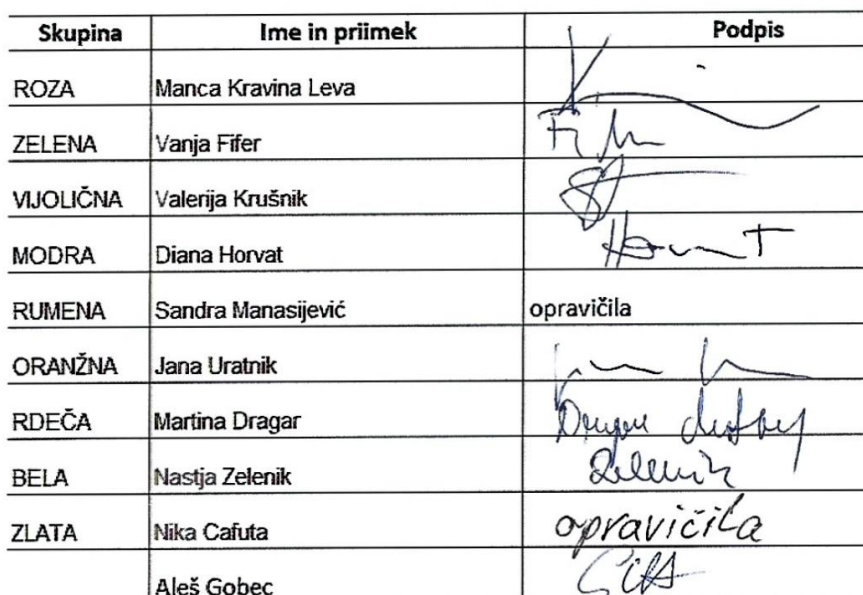 Skupina Ime in priimek Podpis
ROZA Manca Kravina Leva
ZELENA Vanja Fifer
VIJOLIČNA Valerija Krušnik
MODRA Diana Horvat Horvat
RUMENA Sandra Manasijević opravičila
ORANŽNA Jana Uratnik
RDEČA Martina Dragar
BELA Nastja Zelenik Zelenik
ZLATA Nika Cafuta opravičila
Aleš Gobec